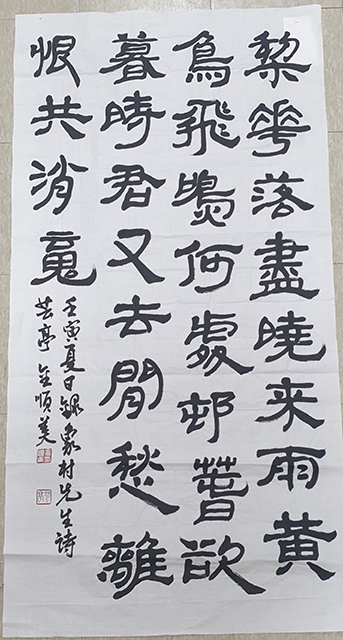 棃華落盡曉来雨黄
鳥飛鳴何處邨萅欲
暮時君又去閒愁離
恨共消魂
壬寅夏日錄象村先生詩
芸亭 金順美